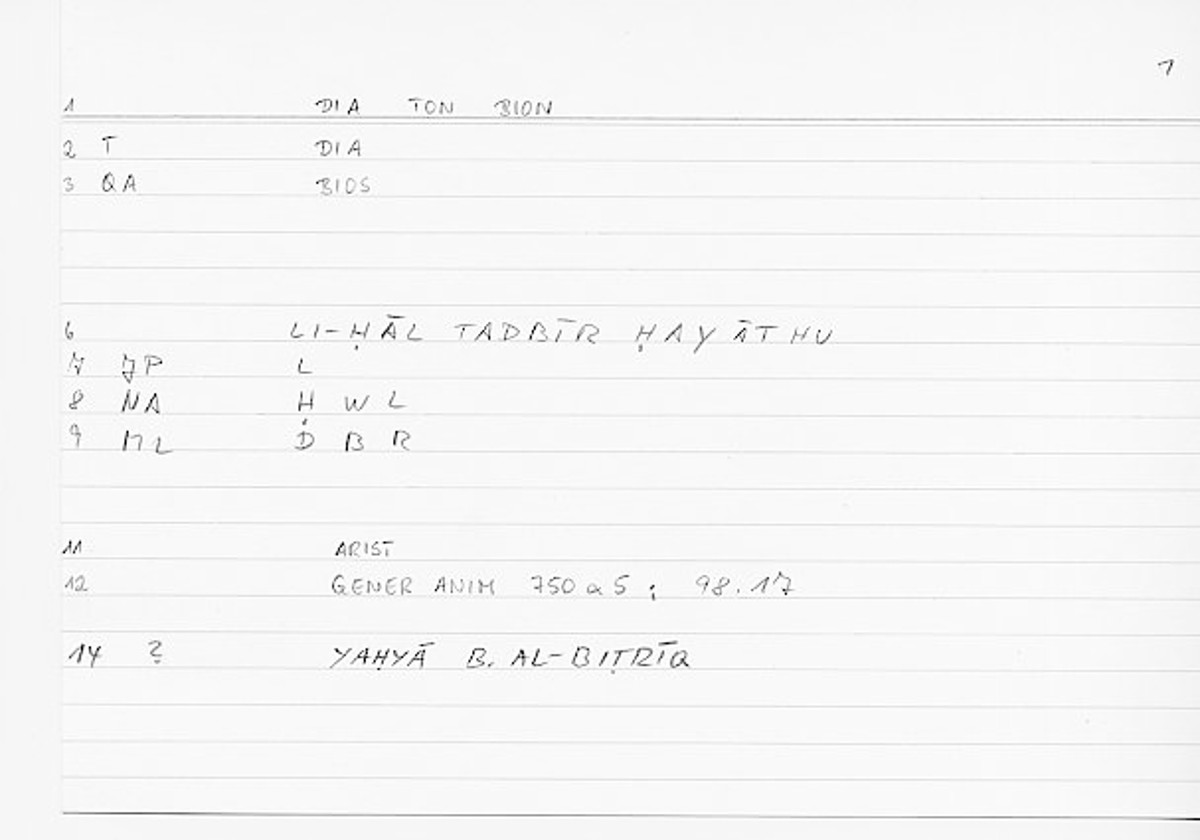 1
1 DIA TON BION
2 T DIA
3 QA BIOS
6 LI-ḤĀL TADBĪR ḤAYĀTHU
7 JP L
8 NA Ḥ W L
9 ML D B R
11 ARIST
12 GENER ANIM 750 a 5 ; 98.17
14 ? YAḤYĀ B. AL-BIṬRĪQ